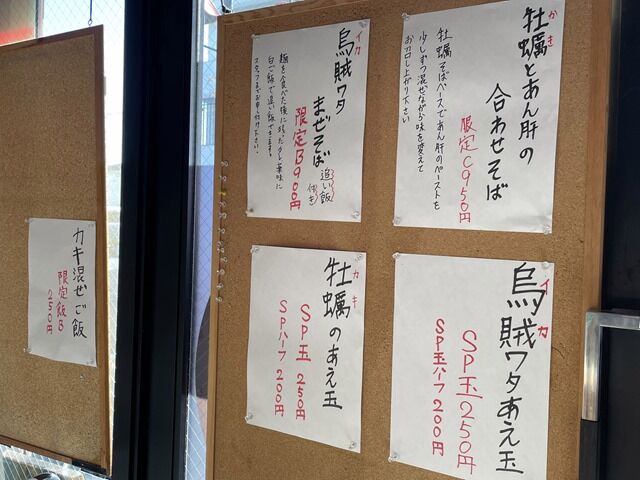 かき
牡蠣とあん肝の
合わせそば
限定C950円
牡蠣そばベースであん肝のペーストを
少しずつ混ぜながら味を変えて
お召し上がり下さい
イカ
烏賊ワタ
まぜそば
追い飯
付き
限定B900円
麺を食べた後に残ったタレ、薬味に
白ご飯で追い飯できます。
スタッフまでお申し付け下さい。
イカ
烏賊ワタあえ玉
SP玉250円
SP玉ハーフ200円
カキ
牡蠣のあえ玉
SP玉 250円
SPハーフ 200円
カキ混ぜご飯
限定飯B
250円